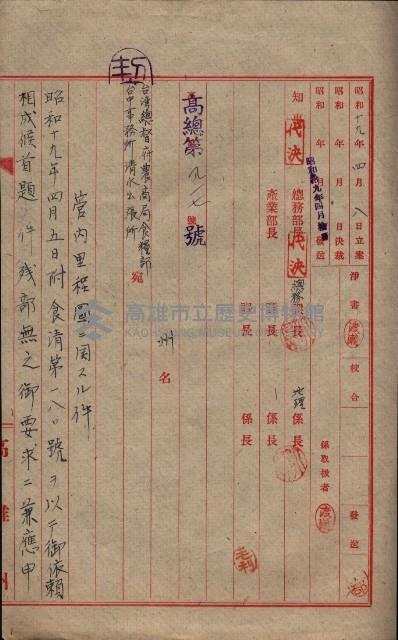 昭和十九年四月八日立案
淨書
校合
發送
昭和 年 月 日決裁
昭和 年 月 日發送
昭和十九年四月
係取扱者
知事
代決
總務部長
代決
總務課長
地理係長
產業部長
課長
係長
部長
課長
係長
高總第九一七號
號
州名
台湾總督府農商局食糧部
台中事務所清水出張所 宛
管内里程圖ニ関スル件
昭和十九年四月五日附食清第一八〇號ヲ以テ御依頼
相成候首題ノ件残部無之御要求ニ兼應申
高雄州
高雄市立歷史博物館
KAOHSIUNG MUSEUM OF HISTORY